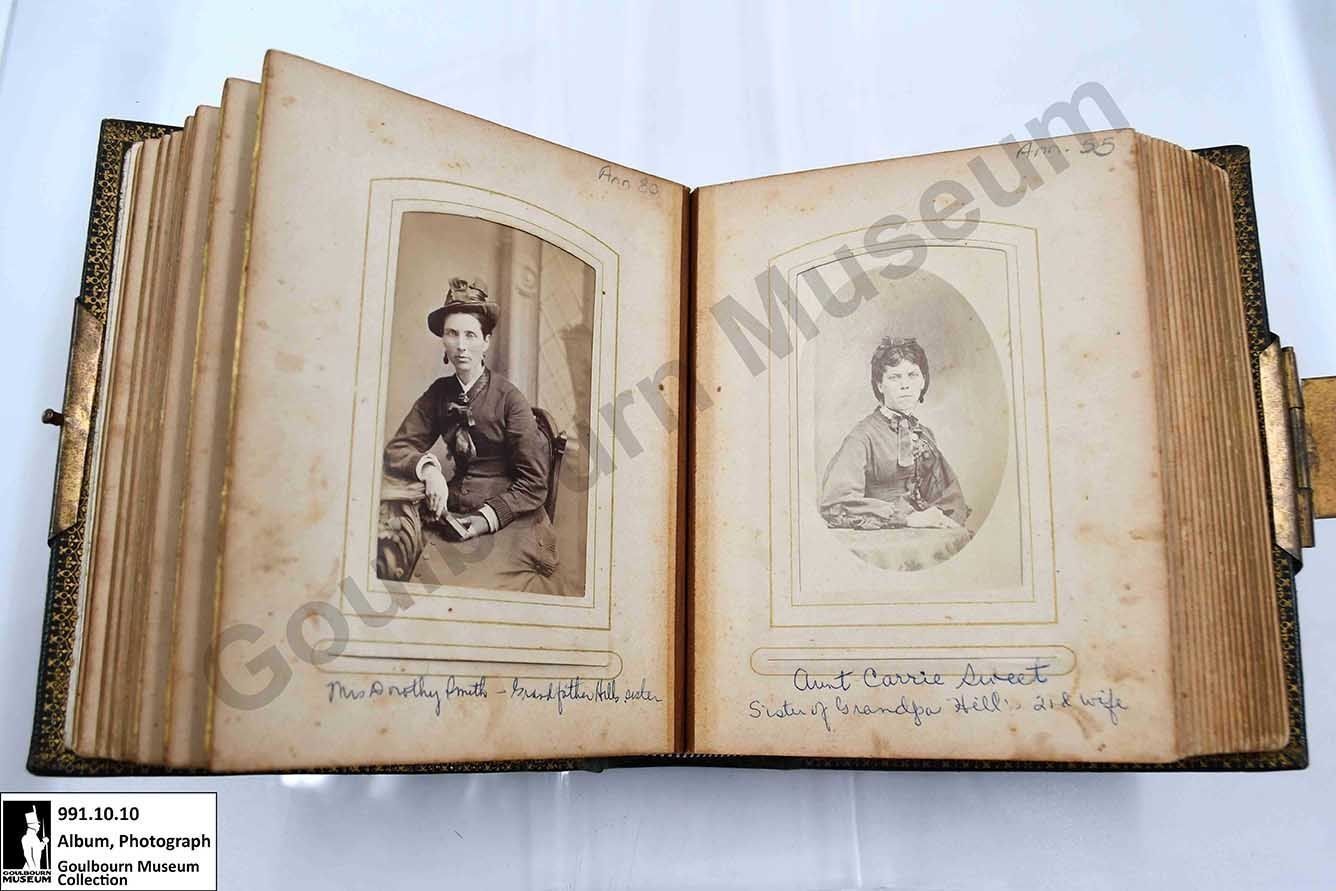 Ann 80
Mrs Dorothy Smith - Grandfather Hills sister
Ann. 55
Aunt Carrie Sweet
Sister of Grandpa Hill's 2nd wife
Goulbourn Museum
991.10.10
Album, Photograph
Goulbourn Museum
Collection
GOULBOURN
MUSEUM